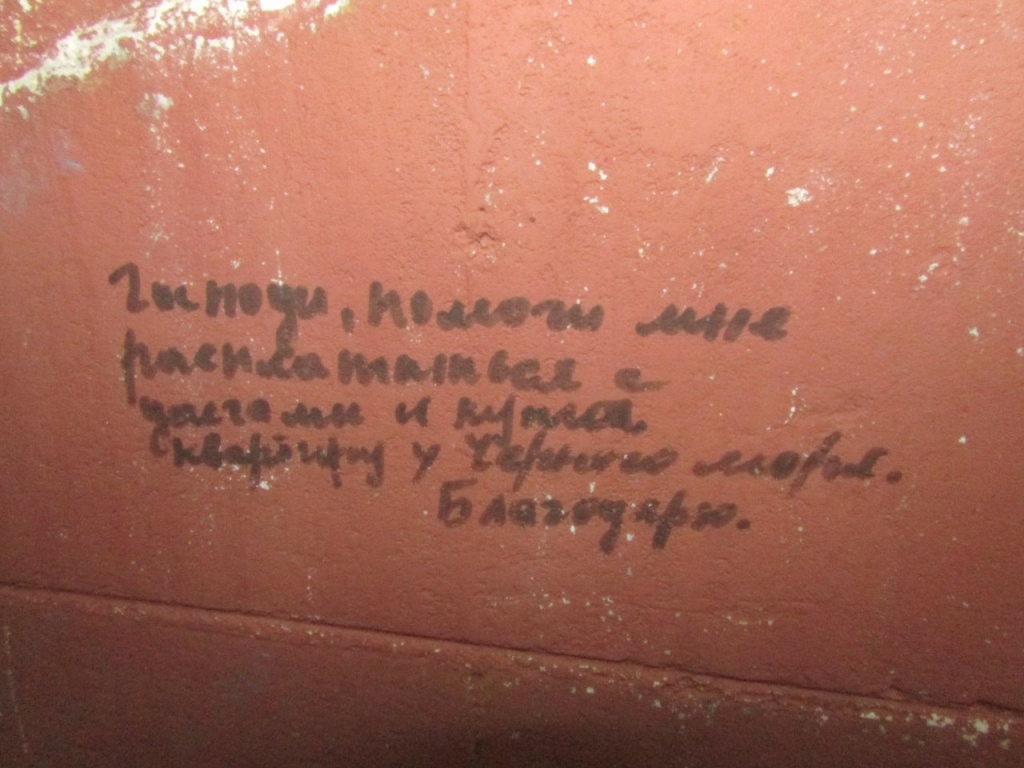 Господи, помоги мне
расплатиться с
долгами и купить
квартиру у Черного моря.
Благодарю.